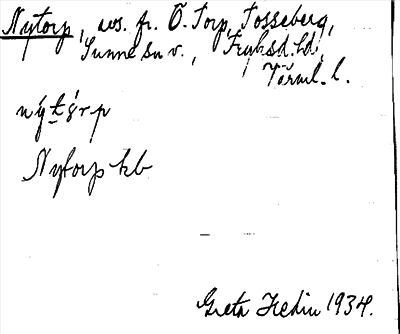 Nytorp, avs. fr. Ö. Torp, Tosseberg,
Sunne sn v., Fryksd. hd,
Värml. l.
nýtɔ́rp
Nytorp kb
Greta Hedin 1934.